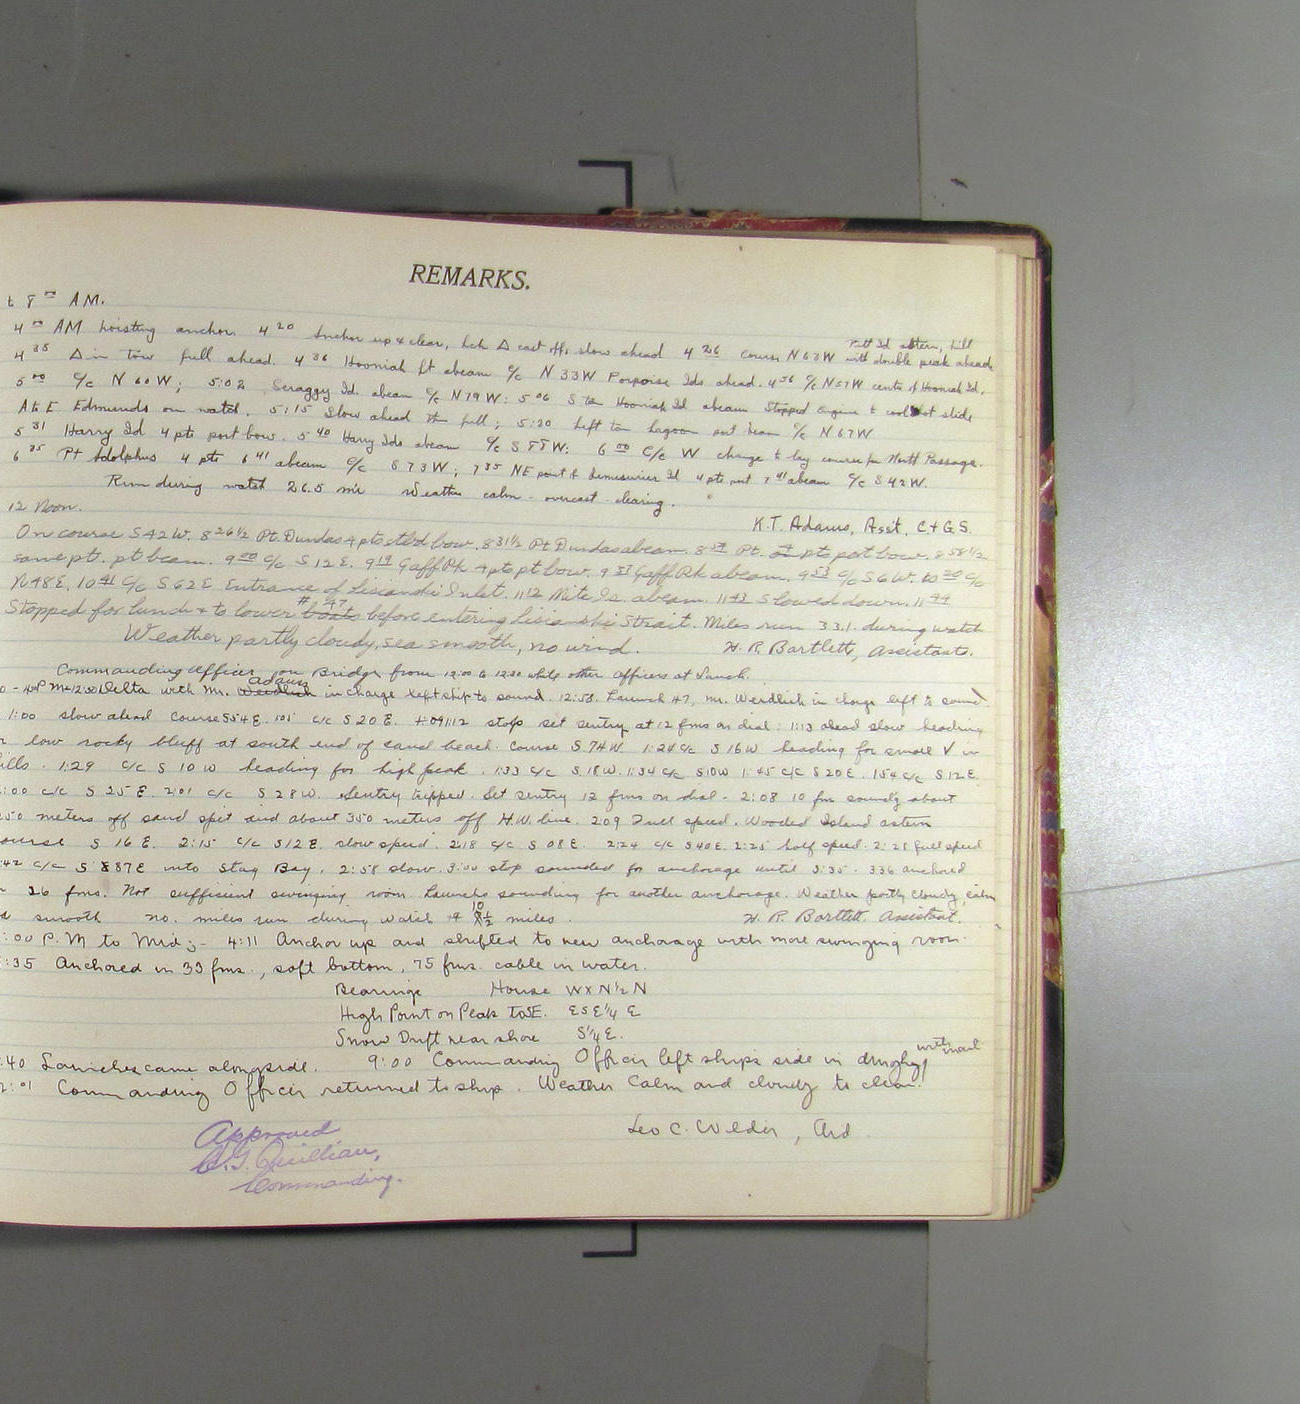 REMARKS.
t 8 00 AM.
4 00 AM hoisting anchor. 4 20 Anchor up & clear, lch Δ cast off, slow ahead 4 26 course N 63 W Pitt Id astern, hill with double peak ahead
4 35 Δ in tow full ahead. 4 36 Hooniah Pt abeam C/c N 33 W Porpoise Ids ahead. 4 56 C/c N 57 W center of Hooniah Id.
5 00 C/c N 60 W; 5:02 Scraggy Id. abeam C/c N 79 W: 5 06 S tan Hooniah Id abeam Stopped engine to cool hot slide
A & E Edmunds on watch. 5:15 Slow ahead then full; 5:20 left tan lagoon port beam C/c N 67 W
5 31 Harry Id 4 pts port bow. 5 40 Harry Ids abeam C/c S 88 W: 6 00 C/c W change to lay course for North Passage.
6 25 Pt Adolphus 4 pts 6 41 abeam C/c S 73 W; 7 35 NE point of Lemesurier Id 4 pts port 7 41 abeam C/c S 42 W.
Run during watch 26.5 mi Weather calm - overcast - clearing.
K.T. Adams, Asst. C & G.S.
12 Noon.
On course S 42 W. 8 26 1/2 Pt. Dundas 4 pts stbd bow. 8 31 1/2 Pt Dundas abeam. Pt. 4 pts port bow. 8 58 1/2
same pt. pt beam. 9 00 C/c S 12 E. 9 19 Gaff Rk 4 pts pt bow. 9 37 Gaff Rk abeam. 9 53 C/c S 6 W. 10 30 C/c
N 48 E. 10 41 C/c S 62 E Entrance of Lisianski Inlet. 11 12 Mite Is. abeam. 11 43 Slowed down. 11 44
Stopped for lunch & to lower #47 boats before entering Lisianski Strait. Miles run 33.1 during watch
Weather partly cloudy, sea smooth, no wind. H. R. Bartlett, Assistant.
Commanding Officer on Bridge from 12:00 to 12:30 while other officers at Lunch.
- 4 00 PM - 12:30 Delta with Mr. Adams Weidlich in charge left ship to sound. 12:53. Launch 47, Mr. Weidlich in charge left to sound
1:00 slow ahead course S 54 E. 1 05 C/c S 20 E. 1:12 stop set sentry at 12 fms on dial: 1:13 ahead slow heading
low rocky bluff at south end of sand beach. Course S 74 W. 1:24 C/c S 16 W heading for small V in
ills. 1:29 C/c S 10 W heading for high peak. 1:33 C/c S 18 W. 1:34 C/c S 10 W 1:45 C/c S 20 E. 1:54 C/c S 12 E.
:00 C/c S 25 E. 2:01 C/c S 28 W. Sentry tripped. Set sentry 12 fms on dial - 2:08 10 fm sounding about
250 meters off sand spit and about 350 meters off H.W. line. 2 09 Full speed. Wooded Island astern
ourse S 16 E. 2:15 C/c S 12 E. slow speed. 2:18 C/c S 08 E. 2:24 C/c S 40 E. 2:25 half speed. 2:28 full speed
:42 C/c S 87 E into Stag Bay. 2:58 slow. 3:00 stop sounded for anchorage until 3:35. 3 36 anchored
26 fms. Not sufficient swinging room. Launches sounding for another anchorage. Weather partly cloudy, calm
smooth no. miles run during watch 10 1/2 miles. H. R. Bartlett. Assistant.
:00 P.M to Mid;- 4:11 Anchor up and shifted to new anchorage with more swinging room.
:35 Anchored in 33 fms., soft bottom, 75 fms. cable in water.
Bearings House W x N 1/2 N
High Point on Peak to SE. E S E 1/4 E
Snow Drift near shore S 1/4 E.
:40 Launches came alongside. 9:00 Commanding Officer left ships side in dinghy with mail
:01 Commanding Officer returned to ship. Weather Calm and cloudy to clear.
Leo C. Wilder, Aid
Approved
Commanding.